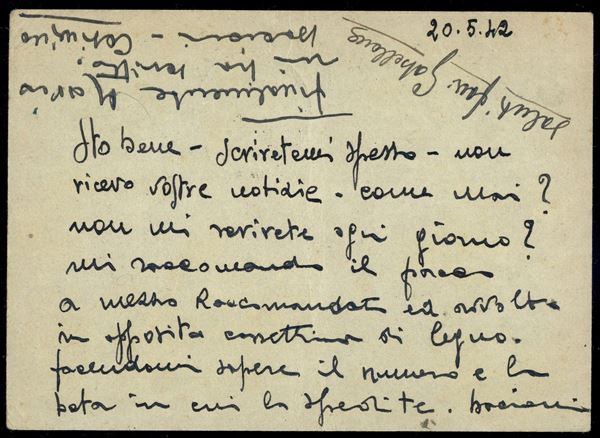 20.5.42
Saluti fam. Gabellone
finalmente Maria
mi ha scritto.
Bacioni - Cosimino
Sto bene - Scrivetemi spesso - non
ricevo vostre notizie - come mai?
non mi scrivete ogni giorno?
mi raccomando il pacco
a mezzo Raccomandata ed avvolto
in apposita cassettina di legno.
facendomi sapere il numero e la
data in cui lo spedite. Bacioni